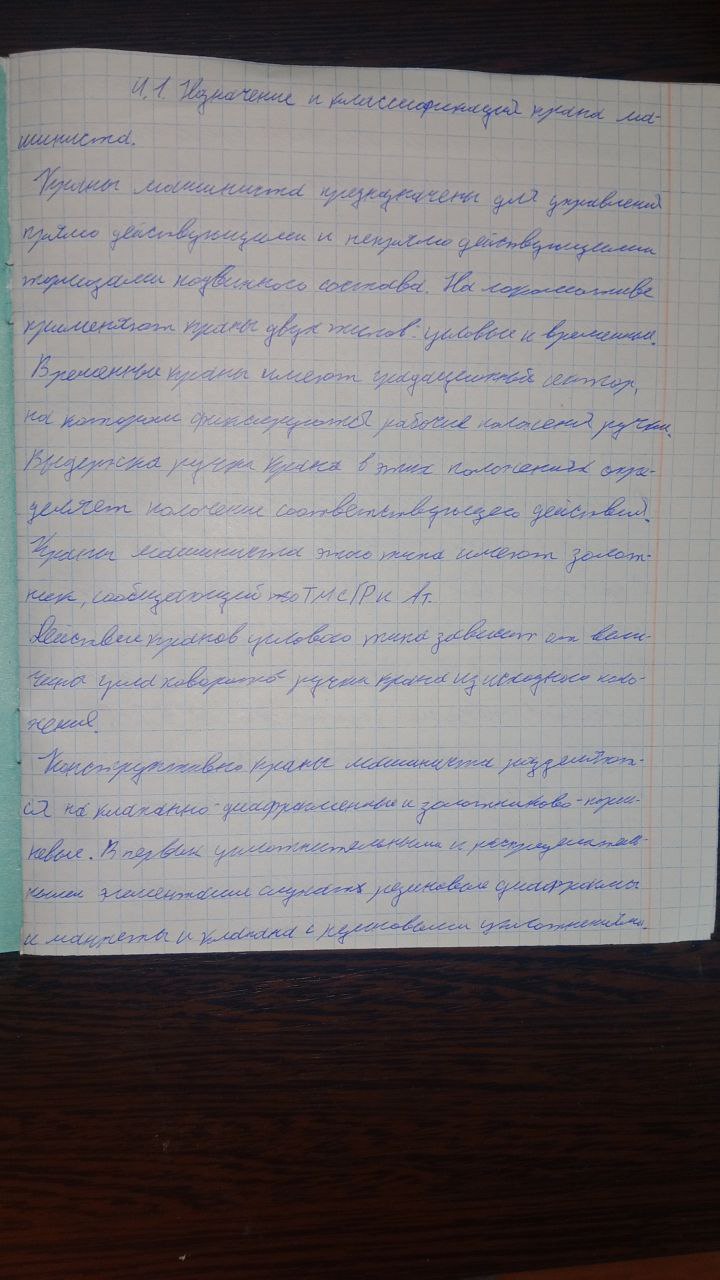 4.1. Назначение и классификация крана ма-
шиниста.
Краны машиниста предназначены для управления
прямодействующими и непрямодействующими
тормозами подвижного состава. На локомотиве
применяют краны двух типов - угловые и временные.
Временные краны имеют градационный сектор,
на котором фиксируются рабочие положения ручки.
Выдержка ручки крана в этих положениях опре-
деляет получение соответствующего действия.
Краны машиниста этого типа имеют золот-
ник, сообщающий ТМ с ГР и Ат.
Действие кранов углового типа зависит от вели-
чины угла поворота ручки крана из исходного поло-
жения.
Конструктивно краны машиниста разделяют-
ся на клапанно-диафрагменные и золотниково-порш-
невые. В первых уплотнительными и распределитель-
ными элементами служат резиновые диафрагмы
и манжеты и клапана с резиновыми уплотнениями.